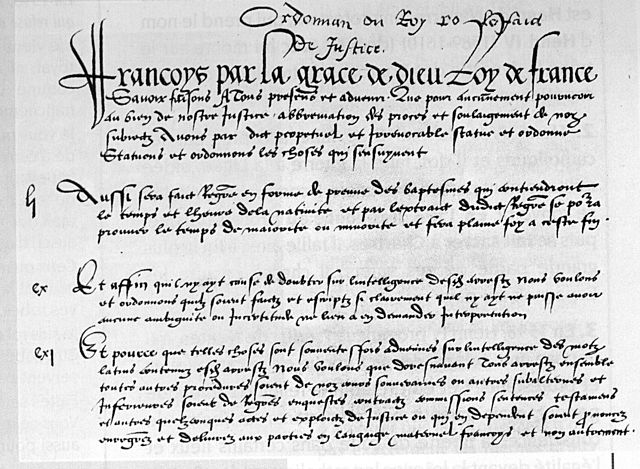 Ordonnan du Roy po le faict
De Justice
Francoys par la grace de dieu Roy de france
Savoir faisons A Tous presens et advenir Que pour aucunement pourveoir
au bien de nostre Justice abbreviation des proces et soulagement de noz
subiectz Avons par edict perpetuel et Irrevocable statue et ordonne
Statuons et ordonnons les choses qui sensuyvent
lj Aussi sera faict Regre en forme de preuve des baptesmes qui contiendront
le temps et lheure de la nativite et par lextraict dudict Regre se porra
prouver le temps de maiorite ou minorite et fera plaine foy a ceste fin
cx Et affin quil ny ayt cause de doubter sur lintelligence desd arrestz Nous voulons
et ordonnons quilz soient faictz et escriptz si clairement quil ny ayt ne puisse avoir
aucune ambiguite ou Incertitude ne lieu a en demander Interpretation
cxj Et pource que telles choses sont souventesfois advenues sur lintelligence des motz
latins contenuz esd arrestz Nous voulons que doresnavant Tous arrestz ensemble
toutes autres procedures soient de noz cours souveraines ou autres subalternes et
Inferieures soient de Regres enquestes contractz commissions sentences testamens
et autres quelzconques actes et exploictz de Justice ou qui en dependent soient prononcez
enregrez et delivrez aux parties en langage maternel francoys et non autrement